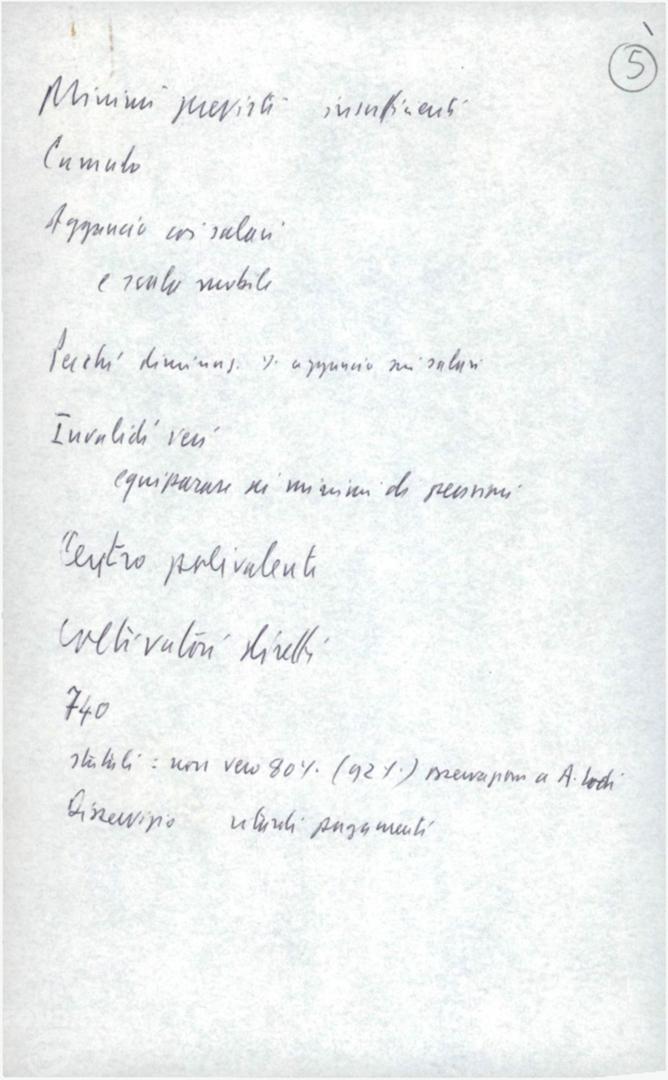 5
Minimi previsti insufficienti
Cumulo
Aggancio coi salari
e scala mobile
Perché diminuz. % aggancio sui salari
Invalidi veri
equiparare ai minimi di pensioni
Centro polivalente
Coltivatori diretti
740
statali: non vero 80% (92%) osservazioni a A. Lodi
Disservizio ritardi pagamenti